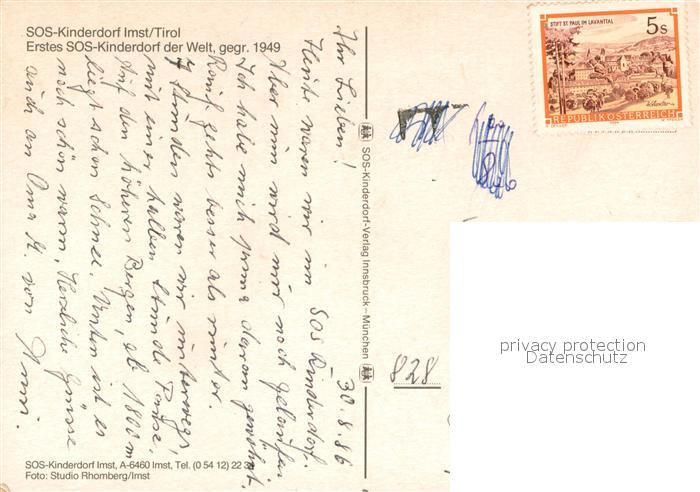 SOS-Kinderdorf Imst/Tirol
Erstes SOS-Kinderdorf der Welt, gegr. 1949
30.8.86
Ihr Lieben!
Heute waren wir im SOS Kinderdorf.
Aber nun wird nur noch gelaufen
Ich habe mich prima daran gewöhnt.
Rauf gehts besser als runter.
7 Stunden waren wir unterwegs,
mit einer halben Stunde Pause.
Auf den höheren Bergen, ab 1800 m
liegt schon Schnee. Unten ist es
noch schön warm. Herzliche Grüsse
auch an Oma M. von
SOS-Kinderdorf Imst, A-6460 Imst, Tel. (0 54 12) 22 3
Foto: Studio Rhomberg/Imst
SOS-Kinderdorf-Verlag Innsbruck – München
STIFT ST. PAUL IM LAVANTTAL
5s
REPUBLIK ÖSTERREICH
828
privacy protection
Datenschutz